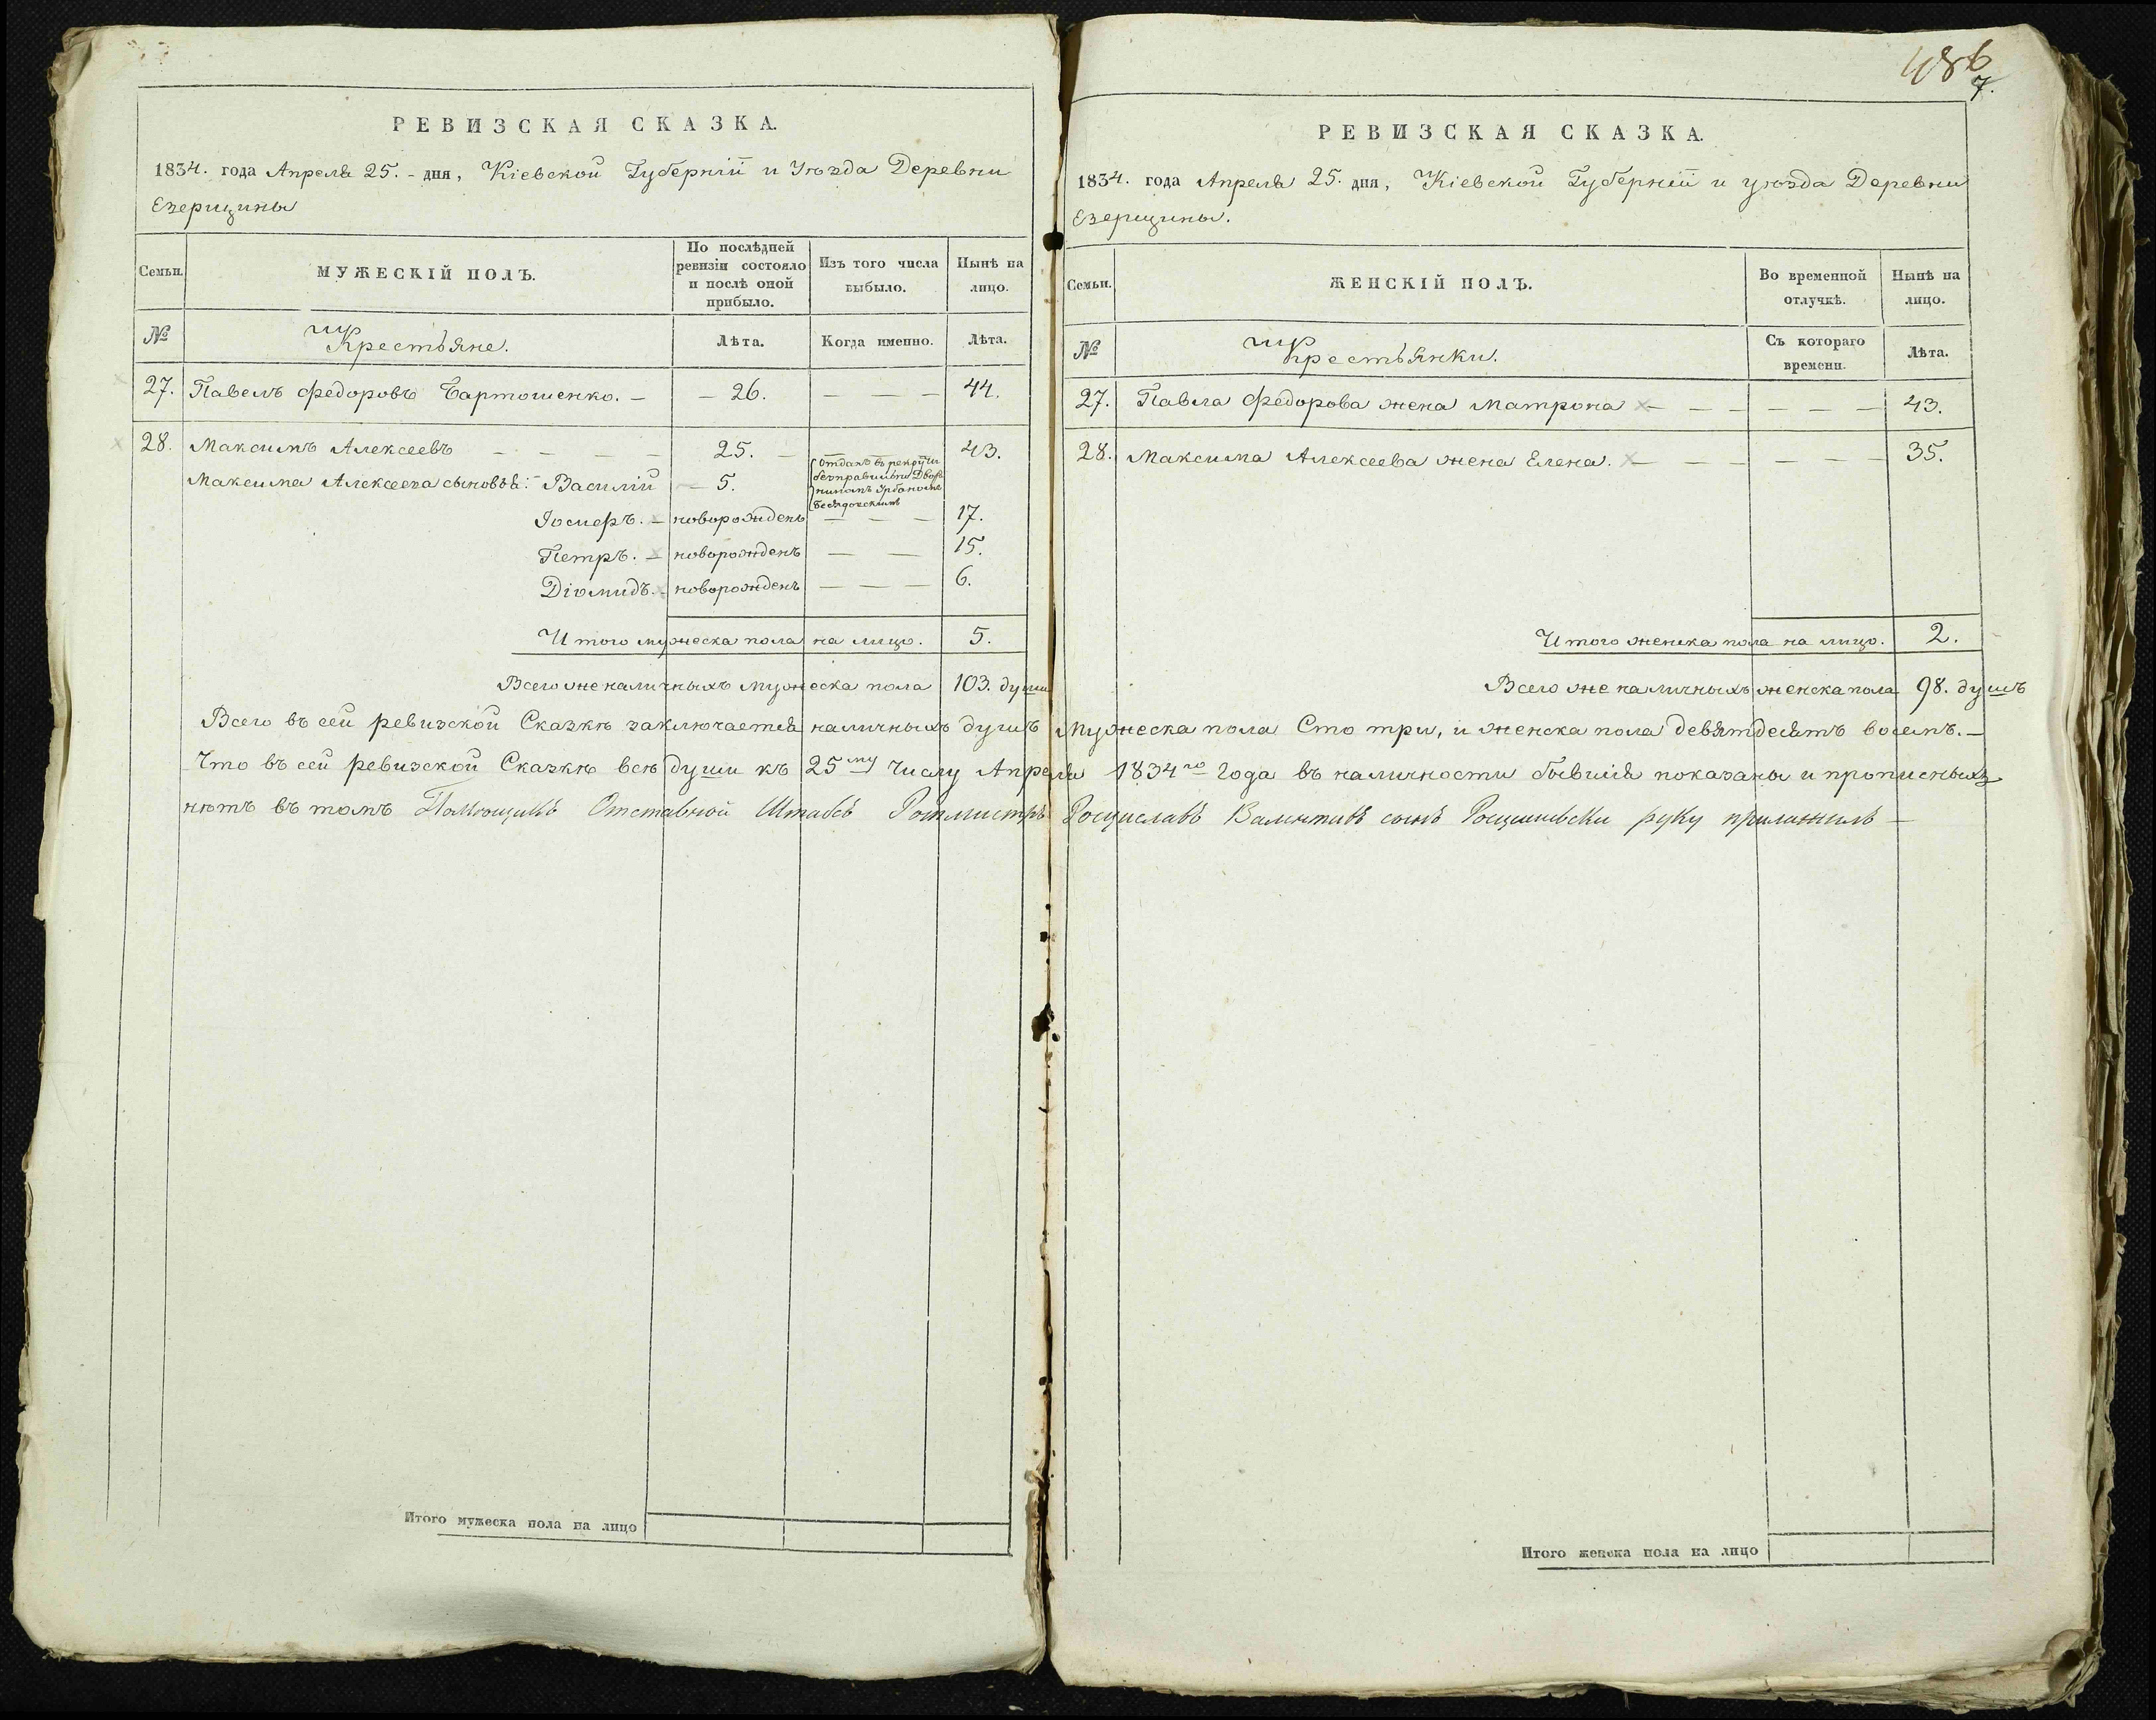 РЕВИЗСКАЯ СКАЗКА.
1834. года Апреля 25. - дня, Кіевской Губерніи и Уѣзда Деревни
Езерщины
Семьи. МУЖЕСКІЙ ПОЛЪ. По послѣдней ревизіи состояло и послѣ оной прибыло. Изъ того числа выбыло. Нынѣ на лицо.
№ Крестьяне. Лѣта. Когда именно. Лѣта.
27. Павелъ Федоровъ Бартошенко. — — 26. — — — 44.
28. Максимъ Алексеевъ — — — — 25. — 43.
Максима Алексеева сыновья: Василій — 5. Отданъ въ рекруты
неправильно Дворя
ниномъ Урбаномъ
Іосифъ. — новорожденъ — — — 17.
Петръ. — новорожденъ — — 15.
Діомидъ. - новорожденъ — — — 6.
Итого мужеска пола на лицо. 5.
Всего же наличныхъ мужеска пола 103. души
486
7.
РЕВИЗСКАЯ СКАЗКА.
1834. года Апреля 25. дня, Кіевской Губерніи и уѣзда Деревни
Езерщины.
Семьи. ЖЕНСКІЙ ПОЛЪ. Во временной отлучкѣ. Нынѣ на лицо.
№ Крестьянки. Съ котораго времени. Лѣта.
27. Павла Федорова жена Матрона — — — — — — 43.
28. Максима Алексеева жена Елена. — — — — — — 35.
Итого женска пола на лицо. 2.
Всего же наличныхъ женска пола 98. душъ
Всего въ сей ревизской Сказкѣ заключается наличныхъ душъ мужеска пола Сто три, и женска пола девятдесятъ восемъ. —
Что въ сей ревизской Сказкѣ всѣ души къ 25му Числу Апреля 1834го Года въ наличности бывшія показаны и прописныхъ
нѣтъ въ томъ Помющикъ Отставной Штабсъ Ротмистръ Росциславъ Валентивъ сынъ руку приложилъ —
Итого мужеска пола на лицо
Итого женска пола на лицо